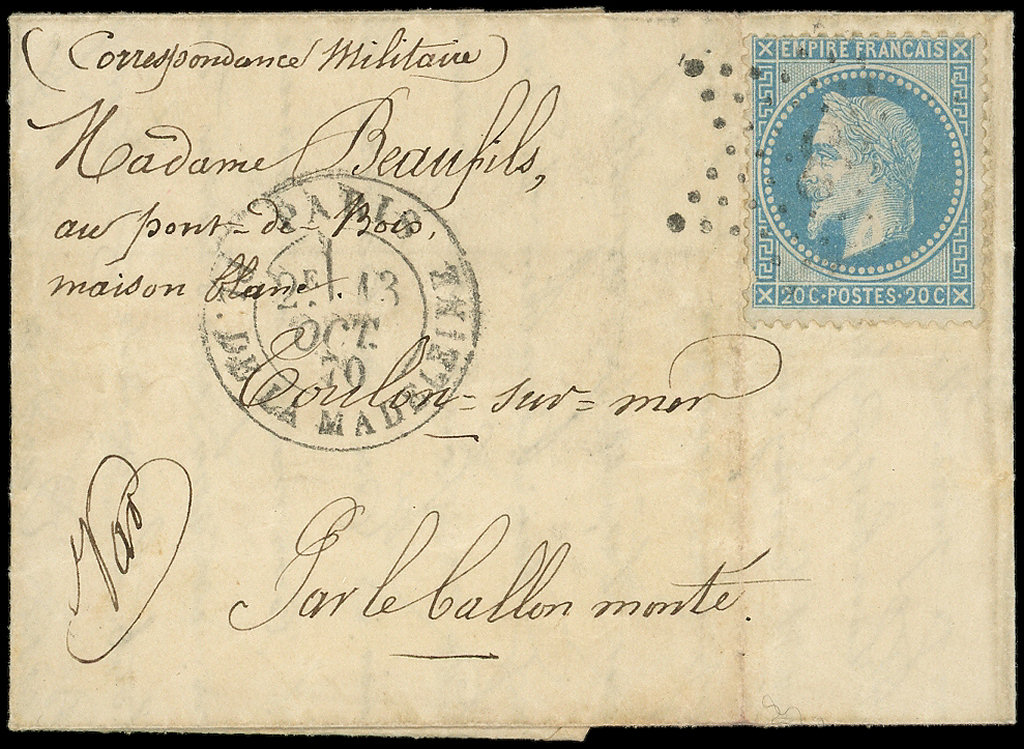 (Correspondance Militaire)
EMPIRE FRANÇAIS
Madame Beaufils,
au pont-de-Bois,
maison blanc.
20C·POSTES·20C
PARIS
2E 13
OCT.
70
DE LA MADELEINE
Toulon-sur-mer
Var
Par le ballon monté.